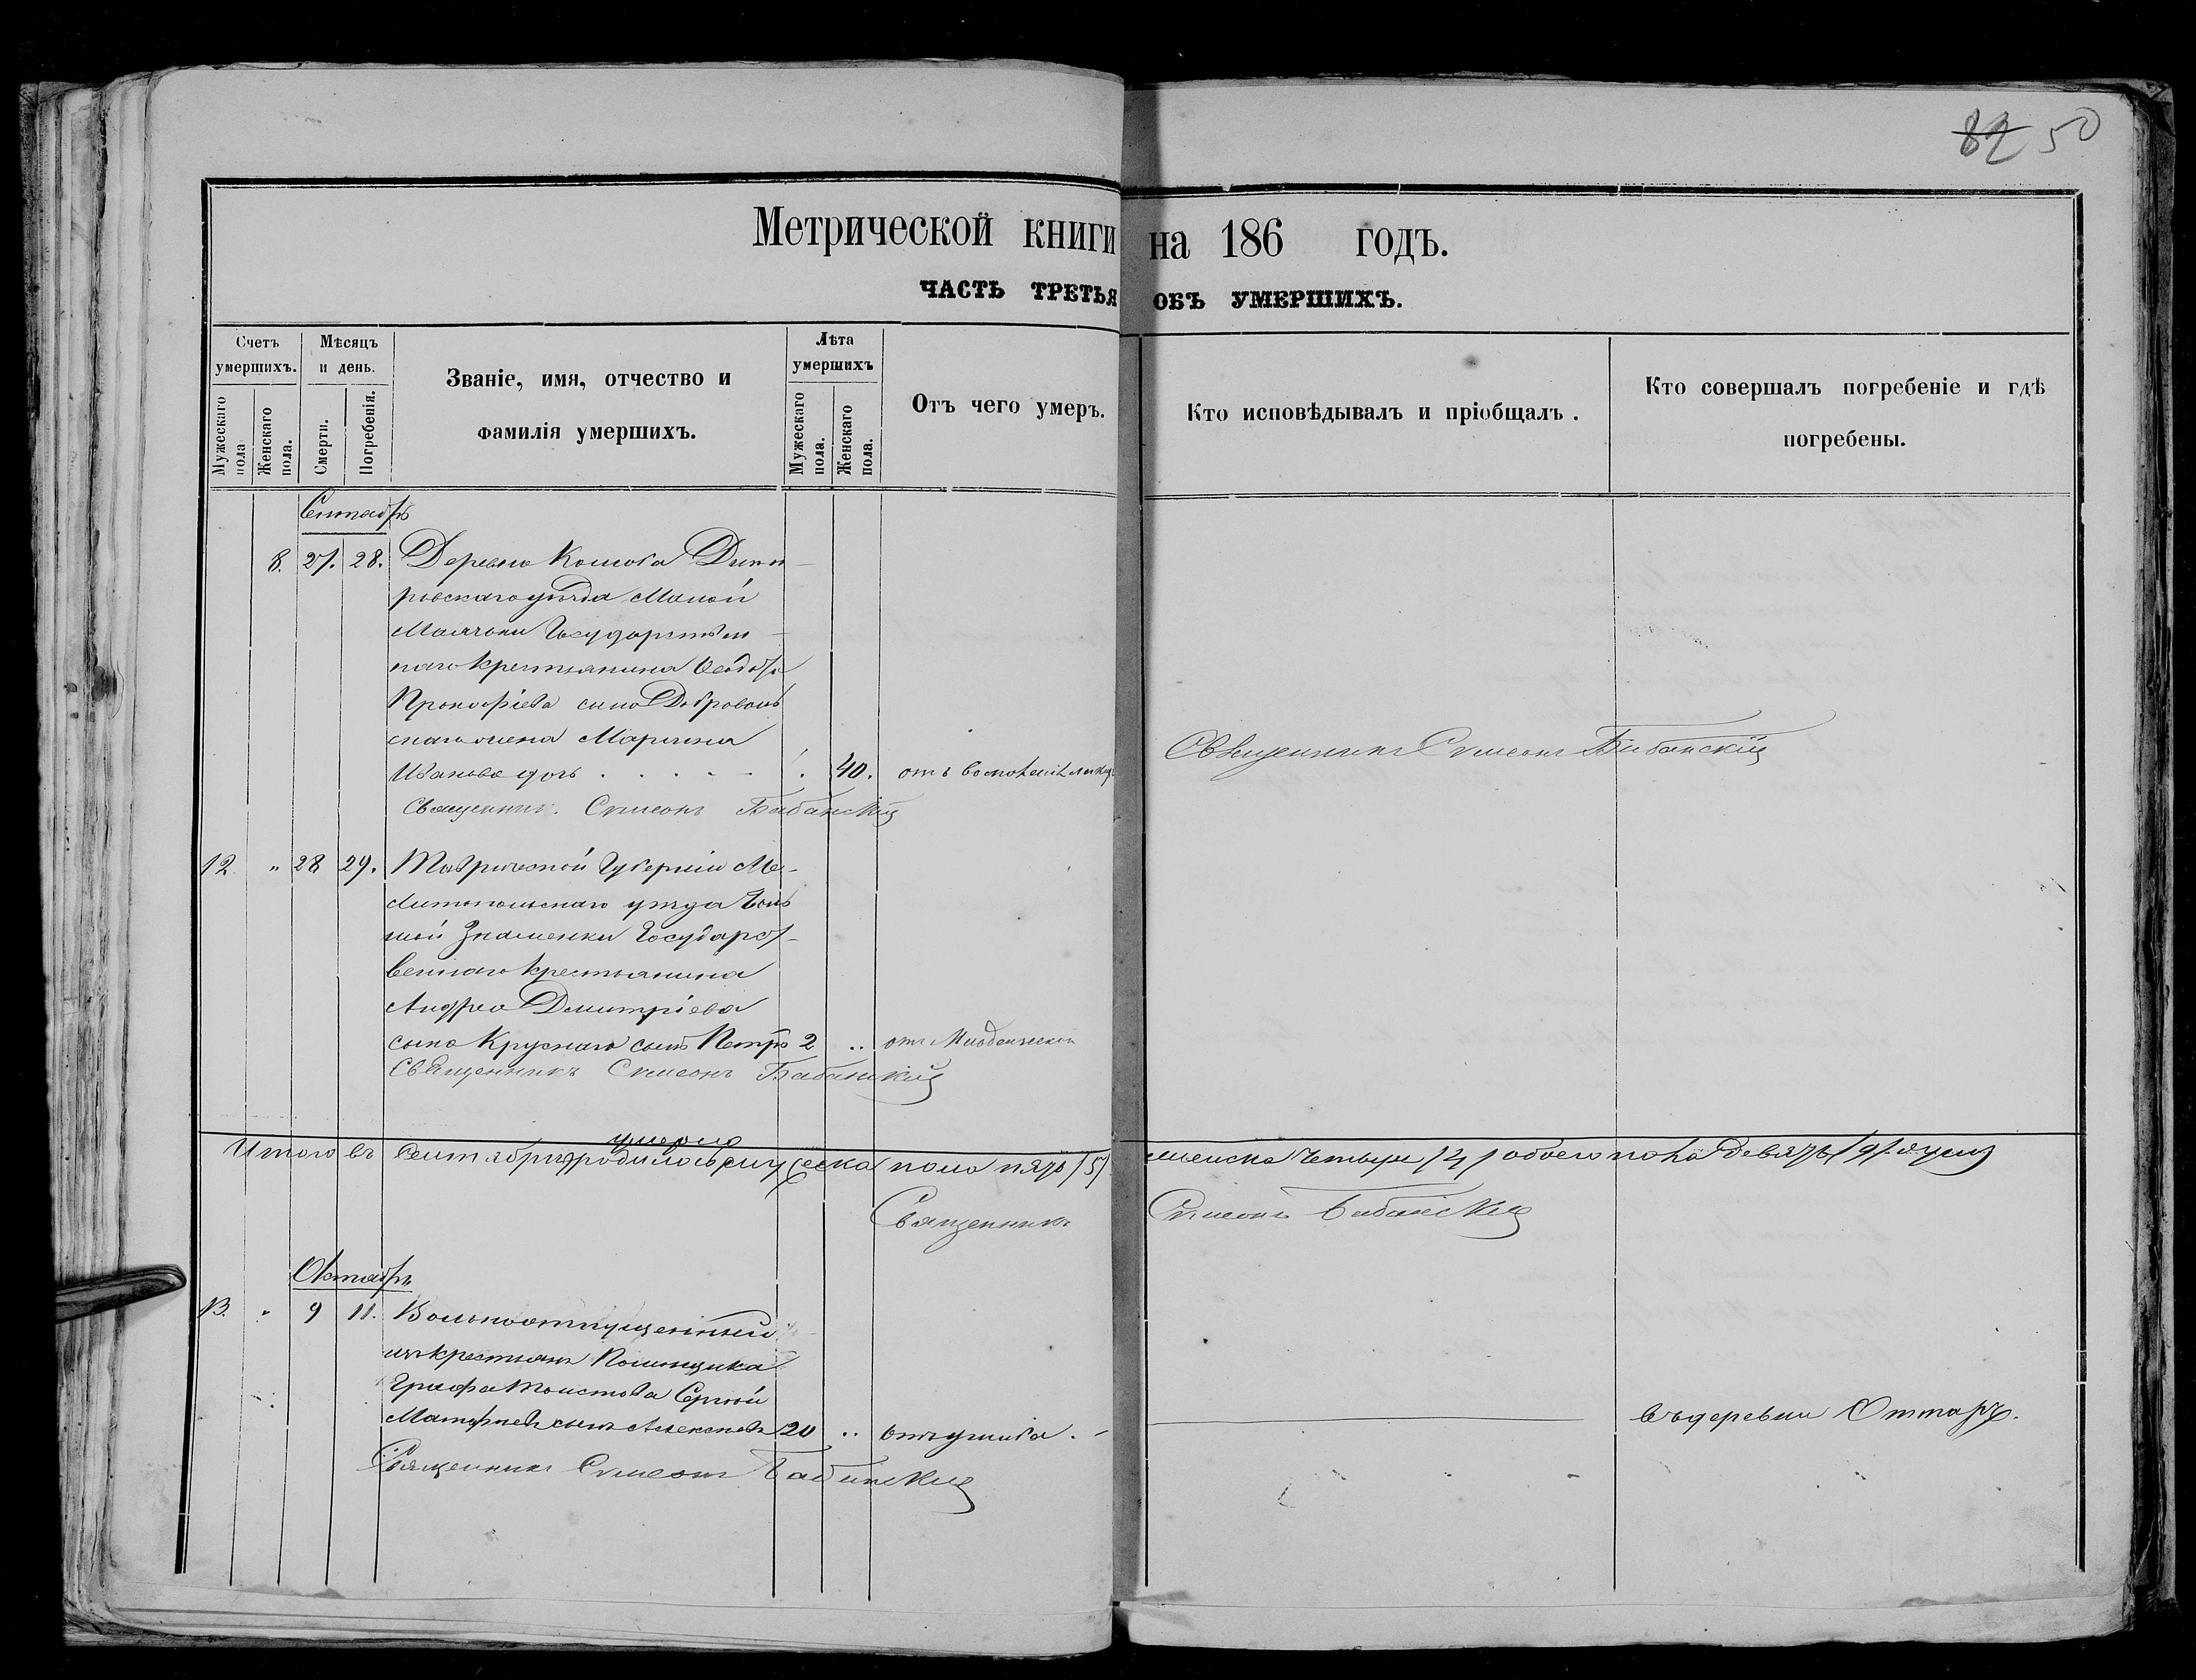 82 50
Метрической книги на 186 годъ.
ЧАСТЬ ТРЕТЬЯ ОБЪ УМЕРШИХЪ.
Счетъ умершихъ.
Мужескаго пола
Женскаго пола.
Мѣсяцъ и день.
Смерти.
Погребенія.
Званіе, имя, отчество и
фамилія умершихъ.
Лѣта умершихъ
Мужескаго пола.
Женскаго пола.
Отъ чего умеръ.
Кто исповѣдывалъ и пріобщалъ.
Кто совершалъ погребеніе и гдѣ
погребены.
Сентябрь
8. 27. 28. Деревни
ровскаго уѣзда Малой
Маячки Государствен-
наго крестьянина Ѳеодора
Прокофіева сына Добровол
скаго жена Марина
Иванова дочь 40. отъ
Священникъ Сѵмеонъ Бабанскій
Священникъ Сѵмеонъ Бабанскій
12 " 28 29. Таврической Губерніи Ме-
литопольскаго уѣзда Боль
шой Знаменки Государст-
веннаго крестьянина
Андрея Димитріева
сына Круснаго сынъ Петръ 2 .. отъ Младенческой
Священникъ Сѵмеонъ Бабанскій
умерло
Итого въ Сентябрѣ родилось мужеска пола пять /5/ женска четыре /4/ обоего пола девять /9/ душъ
Священникъ Сѵмеонъ Бабанскій
Октябрь
13. " 9 11. Вольноотпущенный
изъ крестьянъ Помѣщика
Графа Толстова Сергѣй
Матфѣевъ сынъ Алексѣевъ 20 .. отъ ушиба. въ деревни Оттаръ.
Священникъ Сѵмеонъ Бабанскій